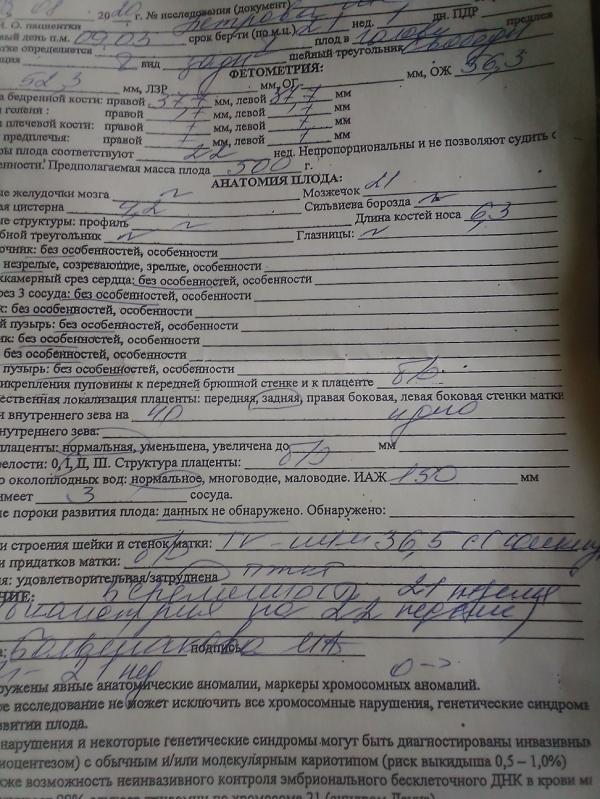 08 20 20 г. № исследования (документ)
И. О. пациентки Петрова
вый день п.м. 09.03 срок бер-ти (по м.ц.) 21 нед. 1 дн. ПДР предлеж
определяется 1 плод в голов
вид задн шейный треугольник свободен
ФЕТОМЕТРИЯ:
52,3 мм, ЛЗР мм, ОГ мм, ОЖ 36,3
а бедренной кости: правой 37,7 мм, левой 37,7 мм
голени : правой мм, левой мм
плечевой кости: правой 1 мм, левой 1 мм
предплечья: правой 1 мм, левой 1 мм
ры плода соответствуют 22 нед. Непропорциональны и не позволяют судить о
енности. Предполагаемая масса плода 500 г.
АНАТОМИЯ ПЛОДА:
ые желудочки мозга N Мозжечок 21
ая цистерна 4,2 Сильвиева борозда N
ые структуры: профиль N Длина костей носа 6,3
бной треугольник N Глазницы: N
очник: без особенностей, особенности
незрелые, созревающие, зрелые, особенности
хкамерный срез сердца: без особенностей, особенности
рез 3 сосуда: без особенностей, особенности
к: без особенностей, особенности
й пузырь: без особенностей, особенности
ик: без особенностей, особенности
без особенностей, особенности
пузырь: без особенностей, особенности
икрепления пуповины к передней брюшной стенке и к плаценте б/о
ественная локализация плаценты: передняя, задняя, правая боковая, левая боковая стенки матки
и внутреннего зева на 40 дно
нутреннего зева:
плаценты: нормальная, уменьшена, увеличена до мм
релости: 0, I, II, III. Структура плаценты: б/о
о околоплодных вод: нормальное, многоводие, маловодие. ИАЖ 150 мм
имеет 3 сосуда.
ые пороки развития плода: данных не обнаружено. Обнаружено:
и строения шейки и стенок матки: б/о 36,5
и придатков матки:
ия: удовлетворительная/затруднена ПЖК
НИЕ: Беременность 21 неделя
(биометрия на 22 недели)
подпись
21 нед
ружены явные анатомические аномалии, маркеры хромосомных аномалий.
ое исследование не может исключить все хромосомные нарушения, генетические синдромы
азвитии плода.
нарушения и некоторые генетические синдромы могут быть диагностированы инвазивны
иоцентезом) с обычным и/или молекулярным кариотипом (риск выкидыша 0,5 – 1,0%)
кже возможность неинвазивного контроля эмбрионального бесклеточного ДНК в крови ма